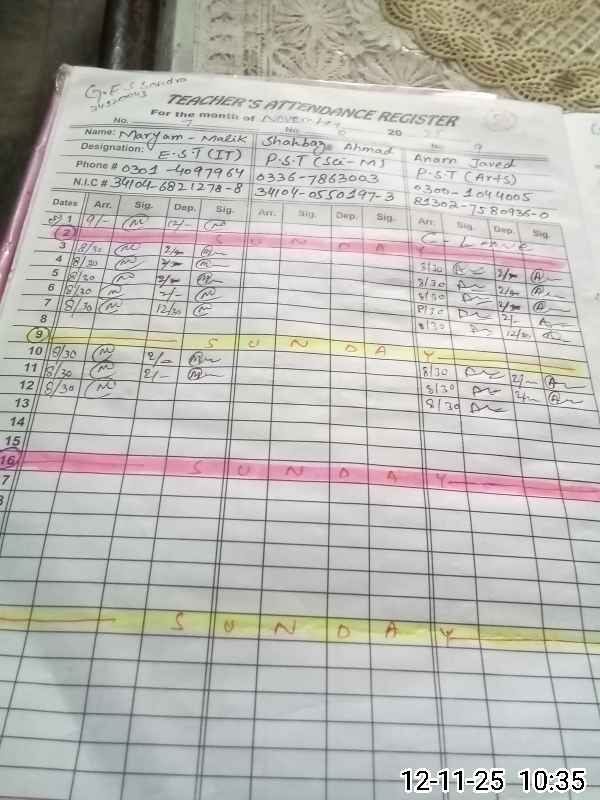 G.E.S
TEACHER'S ATTENDANCE REGISTER
For the month of November 20 25
No. 7 No. 8 No. 9
Name: Maryam - Malik Shahbaz Ahmad Anam Javed
Designation: E.S.T (IT) P.S.T (Sci-M) P.S.T (Arts)
Phone # 0301-4097964 0336-7863003 0300-1044005
N.I.C # 34104-6821278-8 34104-0550197-3 81302-7580936-0
Dates Arr. Sig. Dep. Sig. Arr. Sig. Dep. Sig. Arr. Sig. Dep. Sig.
1 9/- 12/- C-Leave
2 SUNDAY
3 8/30 8/30
4 8/30 8/30
5 8/30 8/30
6 8/30 2/- 8/30 2/-
7 8/30 12/30 8/30 12/30
8
9 SUNDAY
10 8/30 2/- 8/30 2/-
11 8/30 2/- 8/30 2/-
12 8/30 8/30
13
14
15
16 SUNDAY
7
SUNDAY
12-11-25 10:35